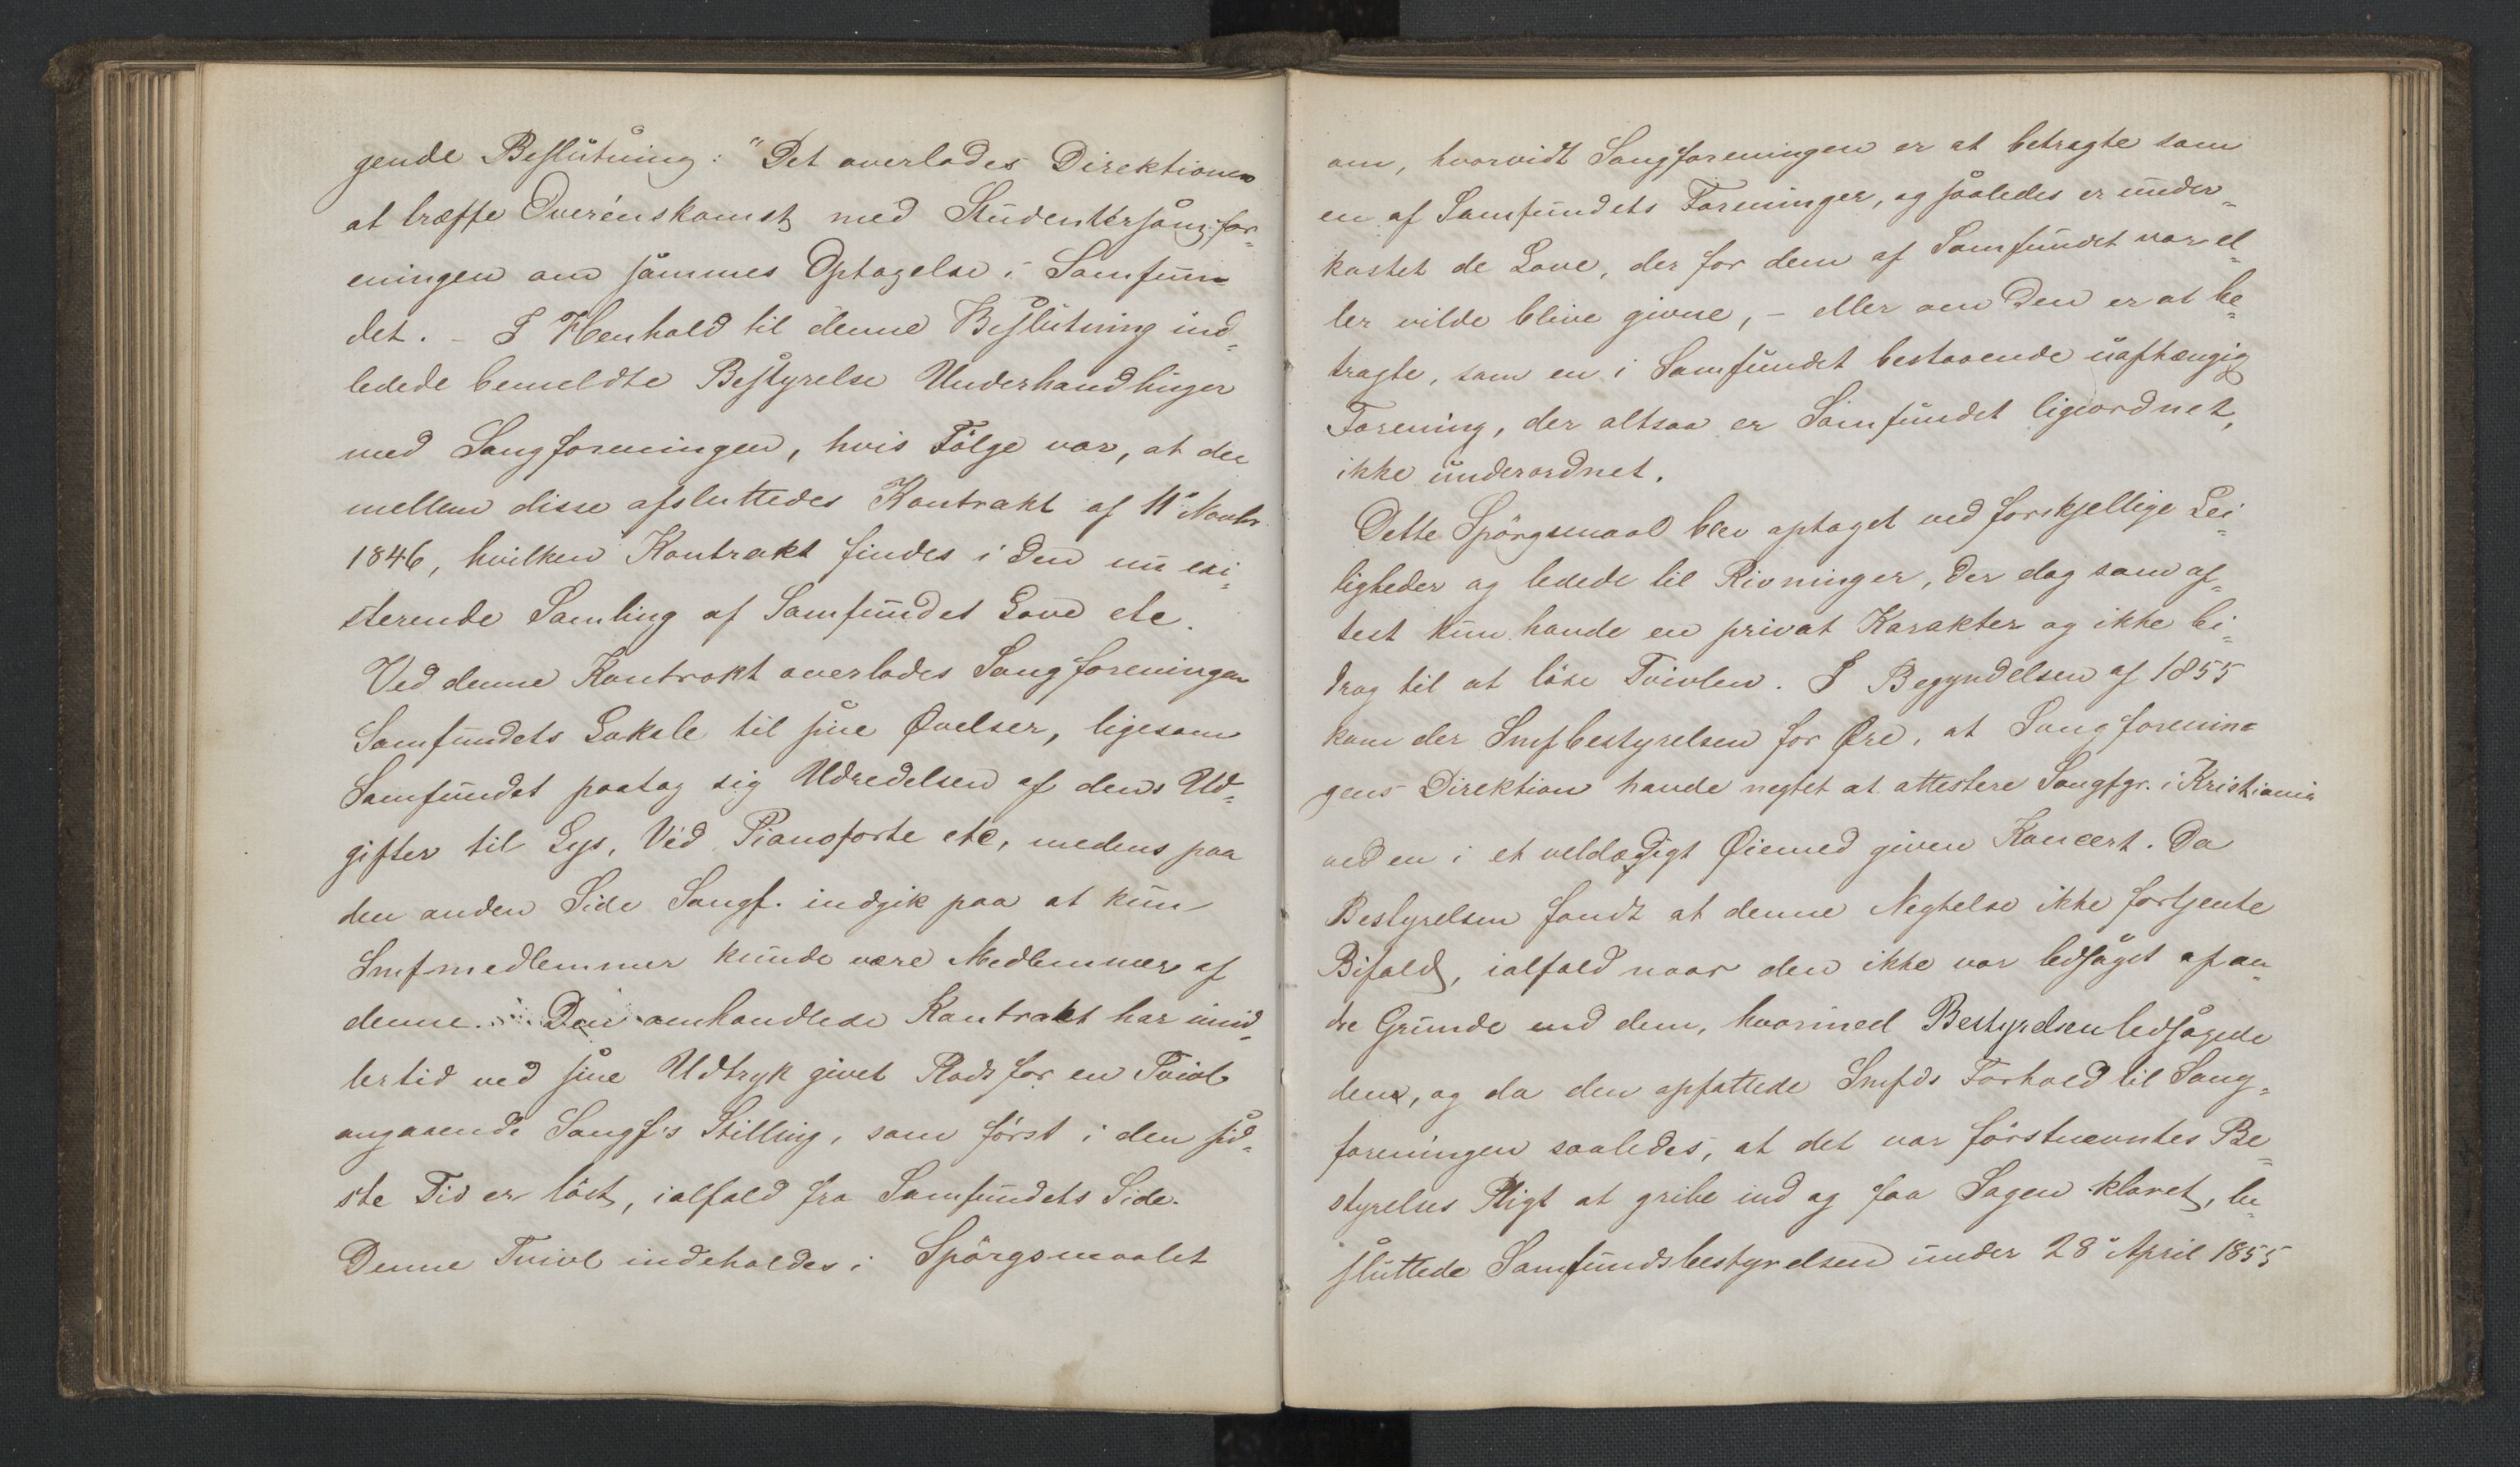 gende Beslutning: "Det overlades Direktionen
at træffe Overenskomst med Studentersangfor=
eningen om sammes Optagelse i Samfun=
det. - I Henhold til denne Beslutning ind=
ledede bemeldte Bestyrelse Underhandlinger
med Sangforeningen, hvis Følge var, at der
mellem disse afsluttedes Kontrakt af 11' Novbr.
1846, hvilken Kontrakt findes i den nu exi=
sterende Samling af Samfundet Love etc.
Ved denne Kontrakt overlodes Sangforeningen
Samfundets Lokale til sine Øvelser, ligesom
Samfundet paatog sig Udredelsen af dens Ud=
gifter til Lys, Ved Pianoforte etc, medens paa
den anden Side Sangf. indgik paa at kun
Smfmedlemmer kunde være Medlemmer af
denne. Den omhandlede Kontrakt har imid=
lertid ved sine Udtryk givet Plads for en Tvivl
angaaende Sangf's Stilling, som først i den sid=
ste Tid er løst, ialfald fra Samfundets Side.
Denne Tvivl indeholdes i Spörgsmaalet
om, hvorvidt Sangforeningen er at betragte som
en af Samfundets Foreninger, og saaledes er under=
kastet de Love, der for dem af Samfundet var el=
ler vilde blive givne, - eller om Den er at be=
tragte, som en i Samfundet bestaaende uafhængig
Forening, der altsaa er Samfundet ligeordnet,
ikke underordnet.
Dette Spörgsmaal blev optaget ved forskjellige Lei=
ligheder og ledede til Rivninger, der dog som of=
test kun havde en privat Karakter og ikke bi=
drog til at löse Tvivlen. I Begyndelsen af 1855
kom der Smfbestyrelsen for Øre, at Sangforenin=
gens Direktion havde negtet at attestere Sangfgr. i Kristiania
ved en i et veldædigt Øiemed given Koncert. Da
Bestyrelsen fandt at denne Negtelse ikke fortjente
Bifald, ialfald naar den ikke var ledsaget af an=
dre Grunde end dem, hvormed Bestyrelsen ledsagede
den, og da den opfattede Smfds Forhold til Sang=
foreningen saaledes, at det var förstnævntes Be=
styrelses Pligt at gribe ind og faa Sagen klaret, be=
sluttede Samfundsbestyrelsen under 28' April 1855